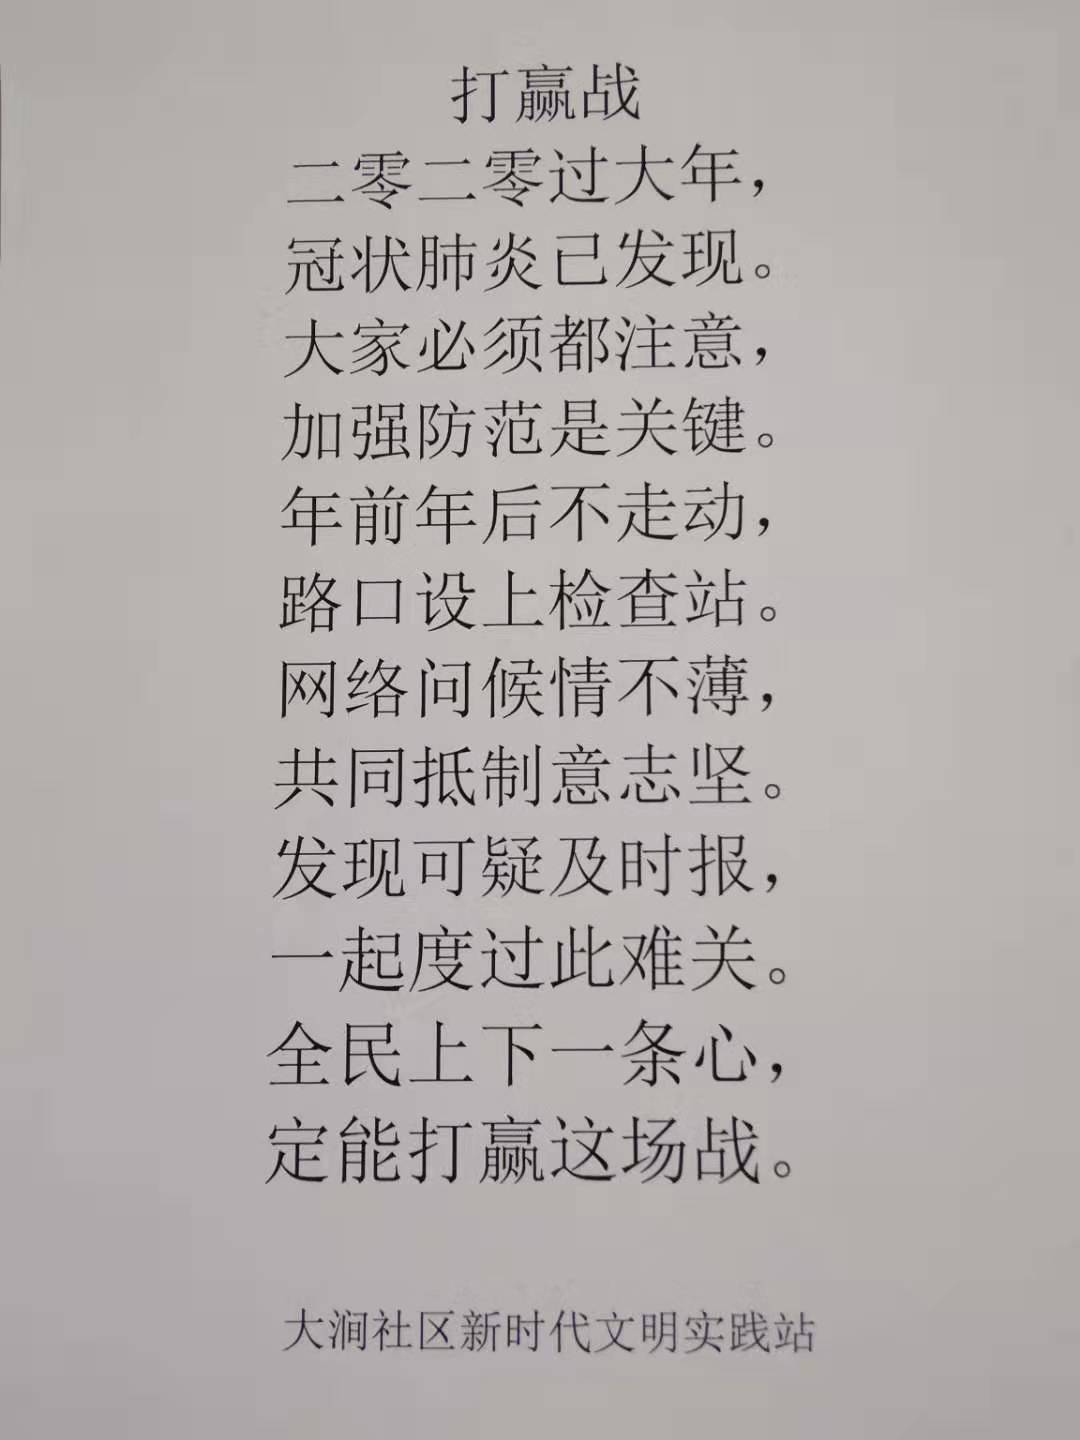 打赢战
二零二零过大年，
冠状肺炎已发现。
大家必须都注意，
加强防范是关键。
年前年后不走动，
路口设上检查站。
网络问候情不薄，
共同抵制意志坚。
发现可疑及时报，
一起度过此难关。
全民上下一条心，
定能打赢这场战。
大涧社区新时代文明实践站